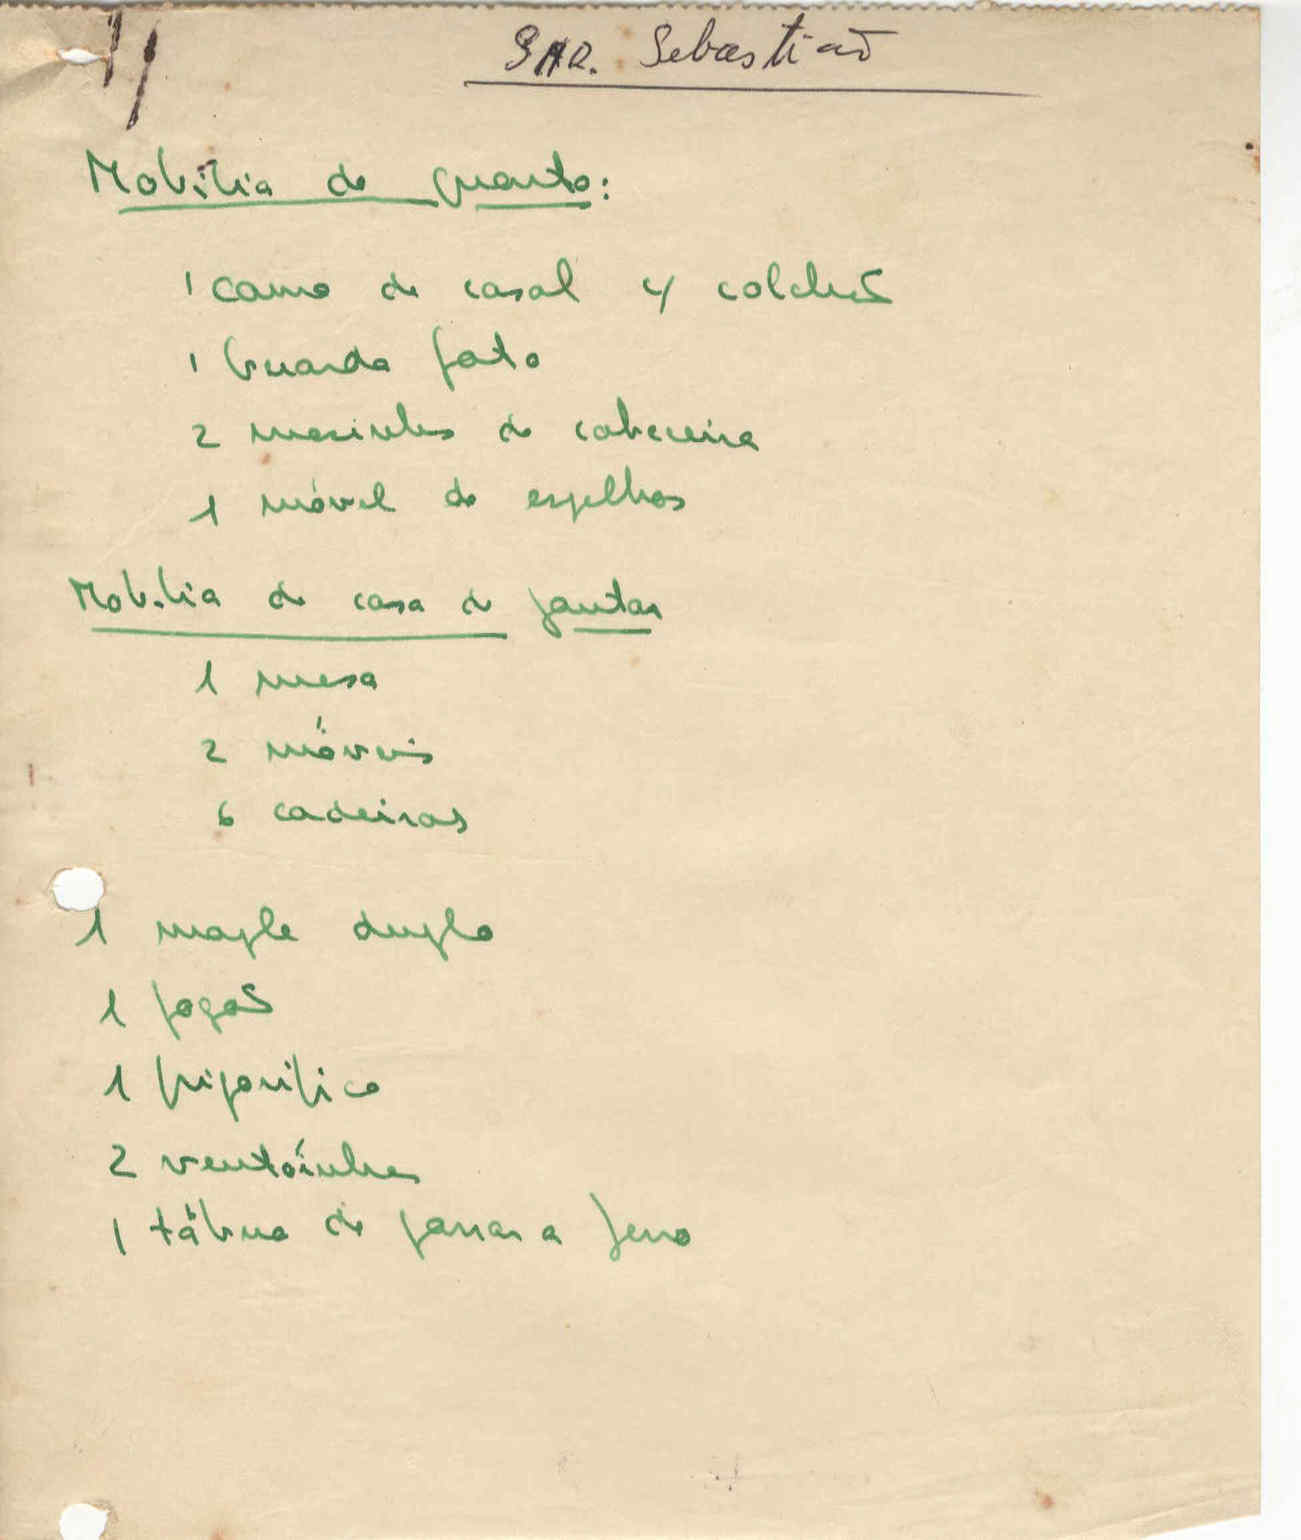 Snr. Sebastião
Mobilia de quarto:
1 cama de casal c/ colchão
1 Guarda fato
2 mesinhas de cabeceira
1 móvel de espelhos
Mobilia de casa de jantar
1 mesa
2 móveis
6 cadeiras
1 maple duplo
1 fogão
1 frigorifico
2 ventoínhas
1 tábua de passar a ferro